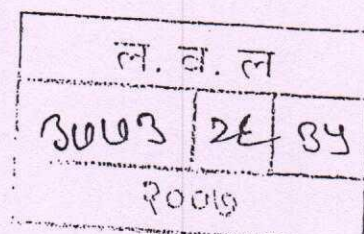 ल. व. ल
३७७३ २६ ३५
२००७